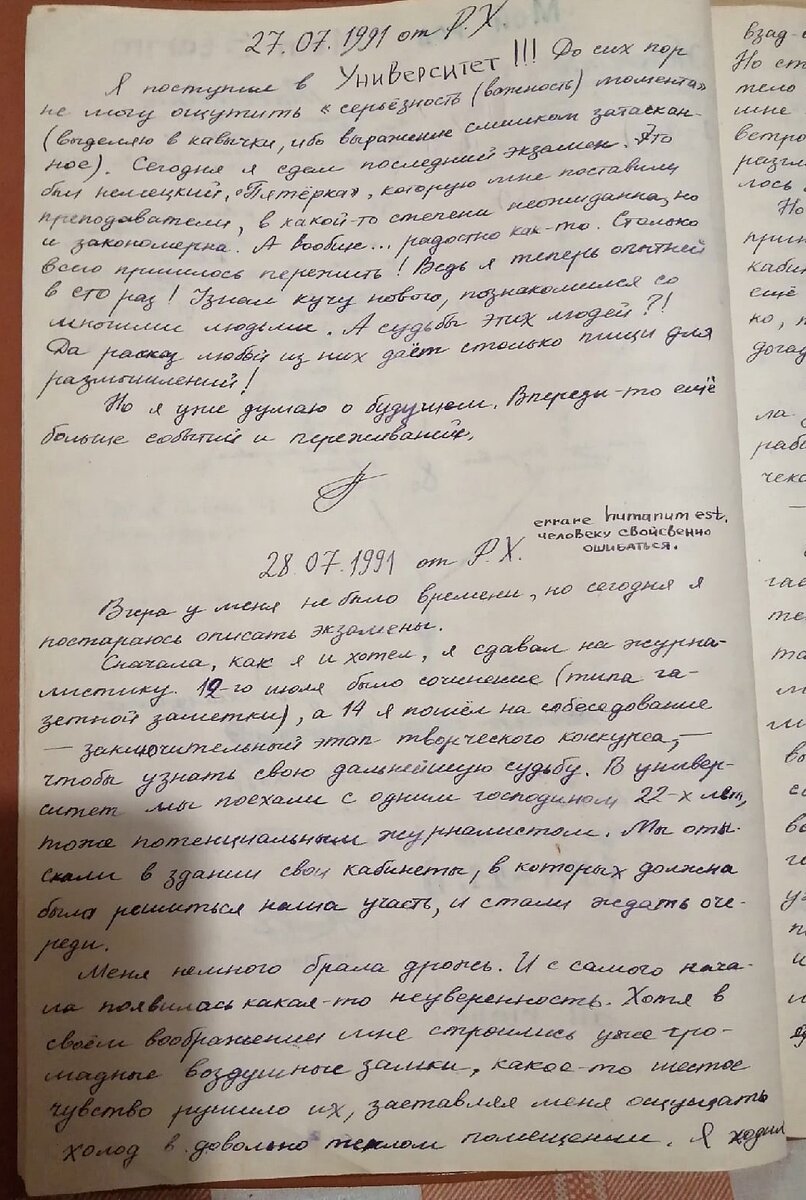 27.07.1991 от Р.Х.
Я поступил в Университет!!! До сих пор
не могу ощутить «серьёзность (важность) момента»
(выделяю в кавычки, ибо выражение слишком затаскан-
ное). Сегодня я сдал последний экзамен. Это
был немецкий. «Пятёрка», которую мне поставили
преподаватели, в какой-то степени неожиданна, но
и закономерна. А вообще... радостно как-то. Столько
всего пришлось пережить! Ведь я теперь опытней
в сто раз! Узнал кучу нового, познакомился со
многими людьми. А судьбы этих людей?!
Да рассказ любой из них даёт столько пищи для
размышлений!
Но я уже думаю о будущем. Впереди-то ещё
больше событий и переживаний.
errare humanum est.
человеку свойсвенно
ошибаться.
28.07.1991 от Р.Х.
Вчера у меня не было времени, но сегодня я
постараюсь описать экзамены.
Сначала, как я и хотел, я сдавал на журна-
листику. 12-го июля было сочинение (типа га-
зетной заметки), а 14 я пошёл на собеседование
— заключительный этап творческого конкурса, —
чтобы узнать свою дальнейшую судьбу. В универ-
ситет мы поехали с одним господином 22-х лет,
тоже потенциальным журналистом. Мы оты-
скали в здании свои кабинеты, в которых должна
была решиться наша участь, и стали ждать оче-
реди.
Меня немного брала дрожь. И с самого нача-
ла появилась какая-то неуверенность. Хотя в
своём воображении мне строились уже гро-
мадные воздушные замки, какое-то шестое
чувство рушило их, заставляя меня ощущать
холод в довольно теплом помещении. Я ходил
взад-
Но ст
тело
мне
ветро
разгл
лось
Но
прин
кабин
ещё
ко, п
догад
ла
рабо
чека